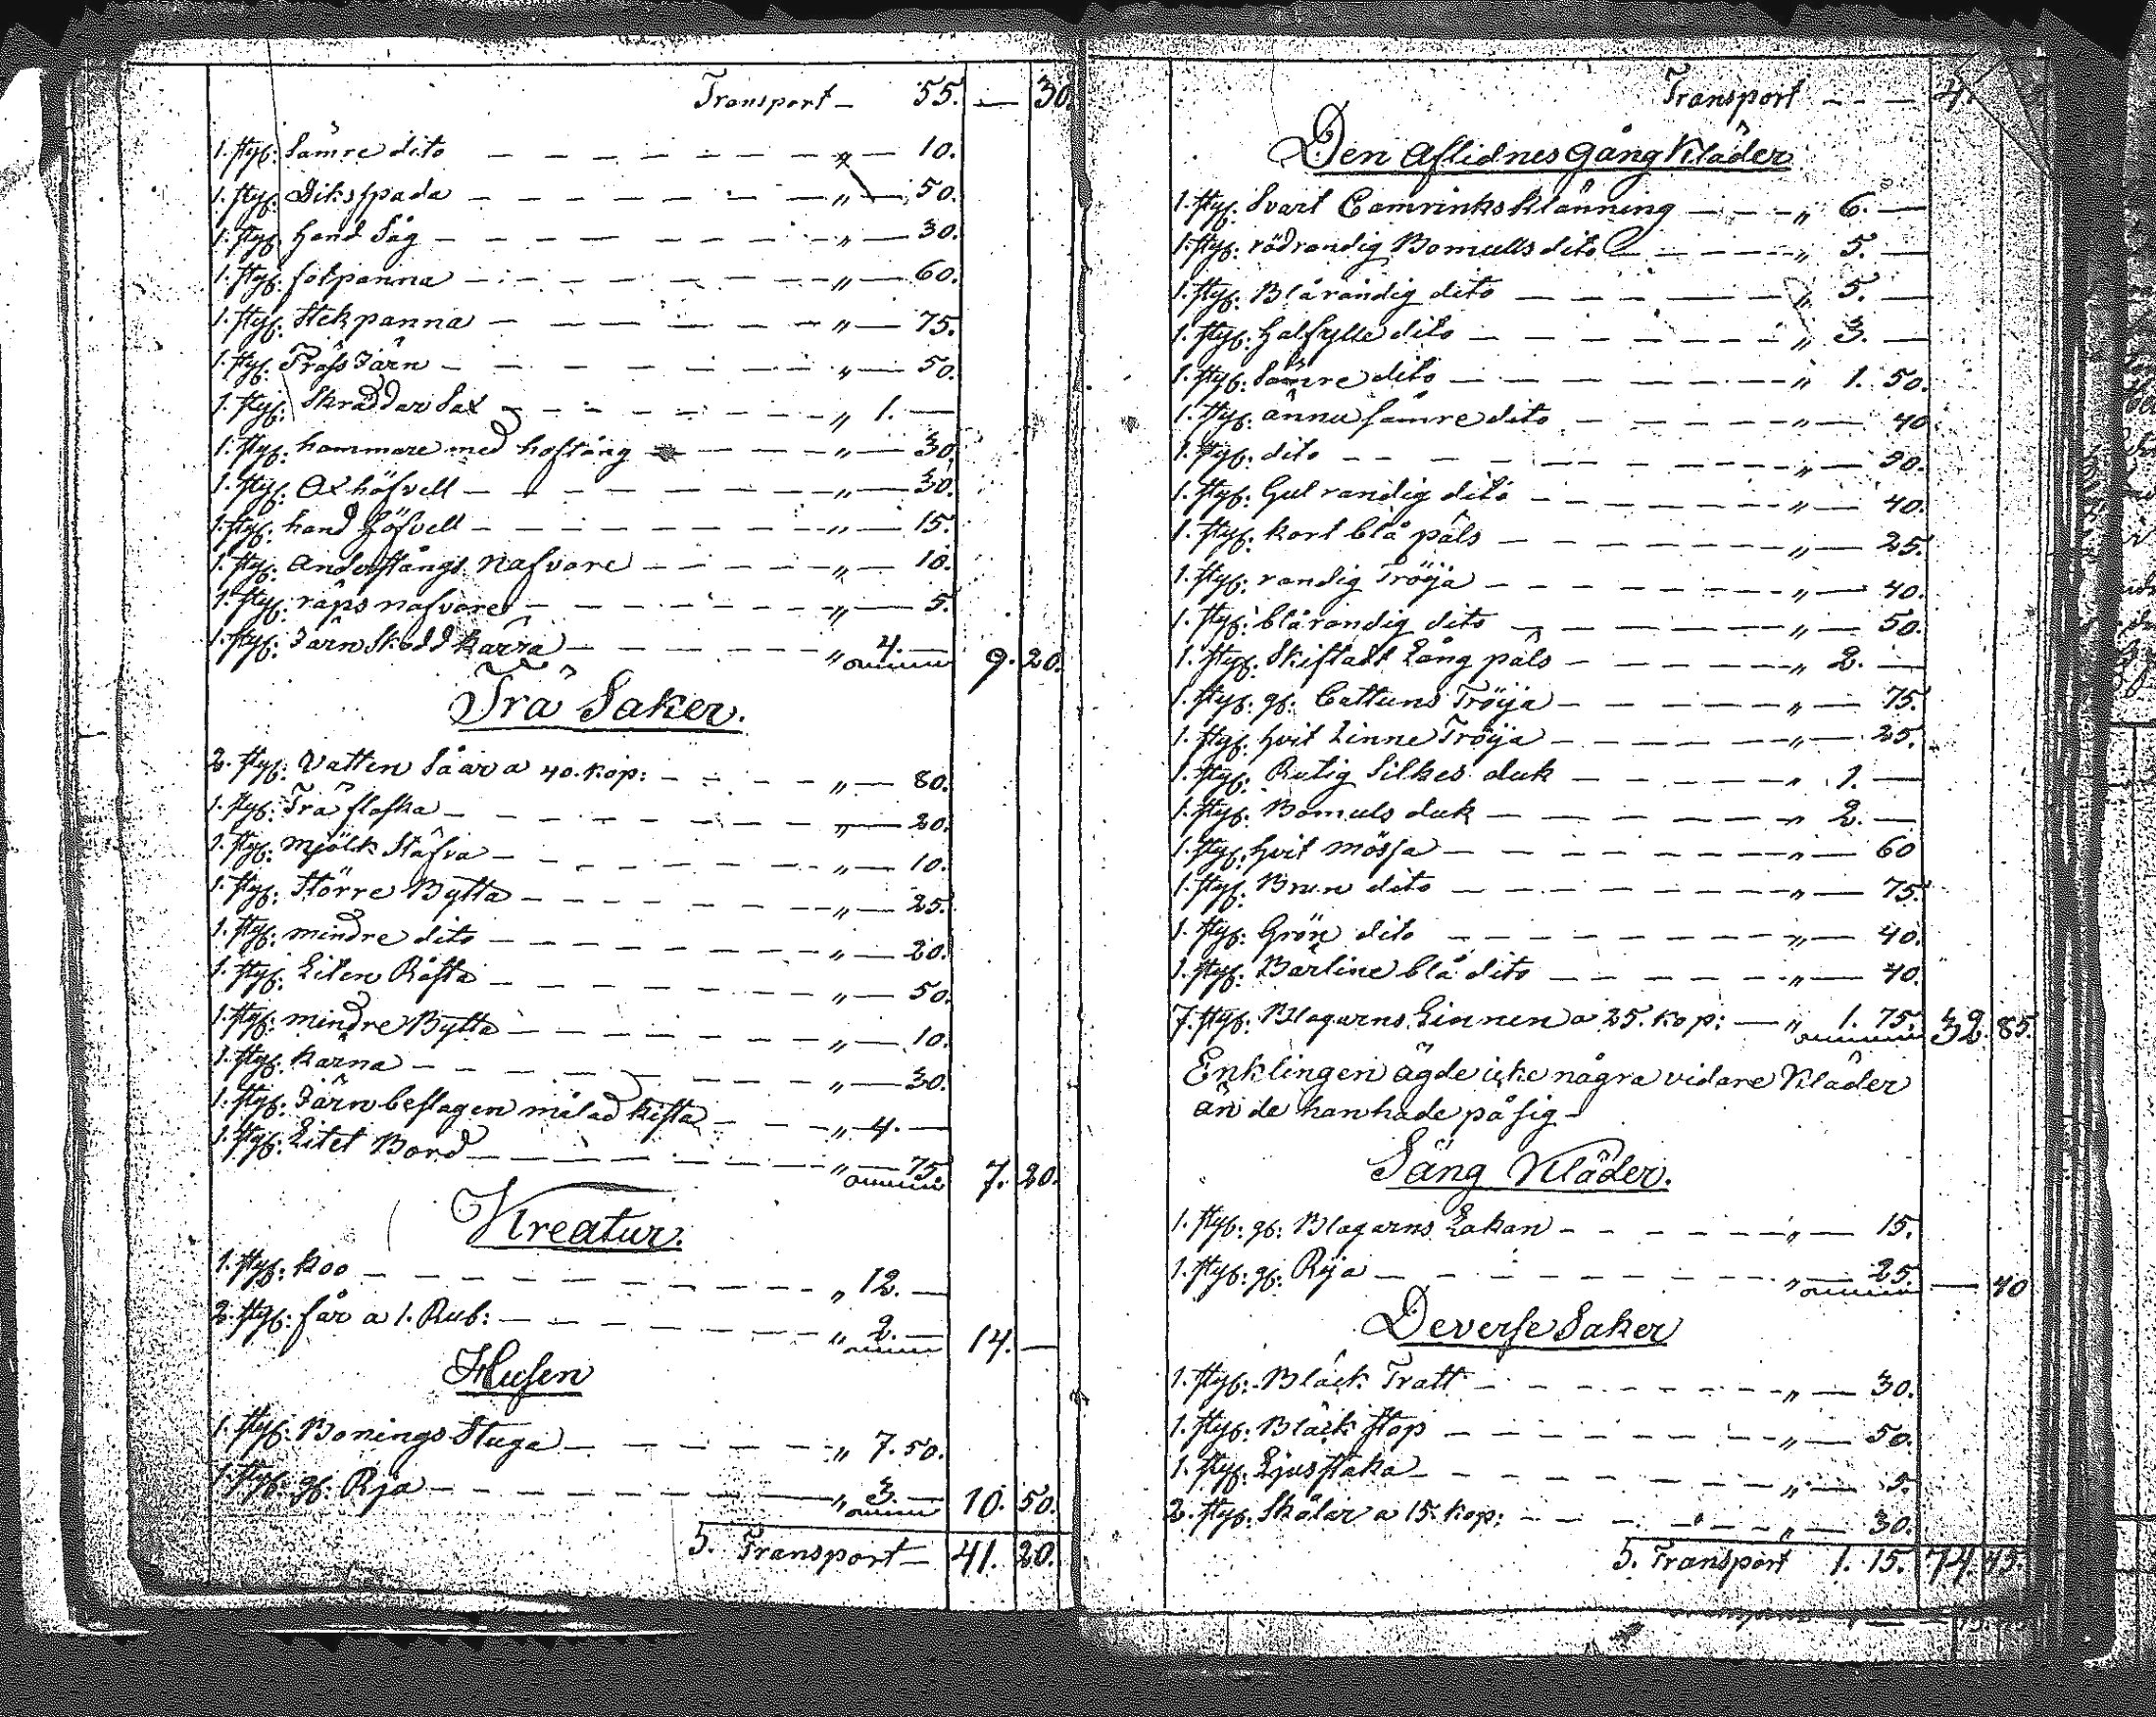 Transport — 55. — 30.
1. styf: Sämre dito — — — " — 10.
1. styf: Dikspada — — — " — 50.
1. styf: hand Såg — — — " — 30.
1. styf: fotpanna — — — " — 60.
1. styf: Stekpanna — — — " — 75.
1. styf: Präss Järn — — — " — 50.
1. styf: Skräddar Sax — — — " 1. —
1. styf: hammare med hoftång — — — " — 30.
1. styf: Oxhöfvell — — — " — 30.
1. styf: hand höfvell — — — " — 15.
1. styf: Anderstångs Nafvare — — — " — 10.
1. styf: råps nafvare — — — " — 5.
1. styf: Järn Skodd kärra — — — " 4. — 9. 20.
Trä Saker.
2. styf: Vatten Såar a 40. kop: — — — " — 80.
1. styf: Trä flaska — — — " — 20.
1. styf: mjölk Stäfva — — — " — 10.
1. styf: Större Bytta — — — " — 25.
1. styf: mindre dito — — — " — 20.
1. styf: Liten — — — " — 50.
1. styf: mindre Bytta — — — " — 10.
1. styf: kärna — — — " — 30.
1. styf: Järnbeslagen målad kista — — — " 4. —
1. styf: Litet Bord — — — " — 75. 7. 20.
Kreatur.
1. styf: Koo — — — " 12. —
2. styf: får a 1. Rub: — — — " 2. — 14. —
Husen
1. styf: Bonings Stuga — — — " 7. 50.
1. styf: gf: Rja — — — " 3. — 10. 50.
S. Transport — 41. 20.
Transport — — — 4
Den Aflidnes Gång Kläder
1. styf: Svart Camrinks klänning — — — " 6. —
1. styf: rödrandig Bomulls dito — — — " 5. —
1. styf: Blårandig dito — — — " 5. —
1. styf: halfylle dito — — — " 3. —
1. styf: Sämre dito — — — " 1. 50.
1. styf: ännu sämre dito — — — " — 40.
1. styf: dito — — — " — 50.
1. styf: Gul randig dito — — — " — 40.
1. styf: kort blå päls — — — " — 25.
1. styf: randig Tröija — — — " — 40.
1. styf: blårandig dito — — — " — 50.
1. styf: Skiftadt Lång päls — — — " 2. —
1. styf: gf: Cattuns Tröija — — — " — 75.
1. styf: hvit Linne Tröija — — — " — 25.
1. styf: Rutig Silkes duk — — — " 1. —
1. styf: Bomuls duk — — — " 2. —
1. styf: hvit mössa — — — " — 60
1. styf: Brun dito — — — " — 75.
1. styf: Grön dito — — — " — 40.
1. styf: Bärline blå dito — — — " — 40.
7. styf: Blagarns Linnen a 25. kop: — " 1. 75. 32. 85.
Enklingen ägde icke några vidare Kläder
än de han hade på sig —
Säng Kläder.
1. styf: gf: Blagarns Lakan — — — " — 15.
1. styf: gf: Rya — — — " — 25. — 40
Deverse Saker
1. styf: Bläck Tratt — — — " — 30.
1. styf: Bläck stop — — — " — 50.
1. styf: Ljusstaka — — — " — 5.
2. styf: Skålar a 15. kop: — — — " — 30.
S. Transport 1. 15. 74. 45.